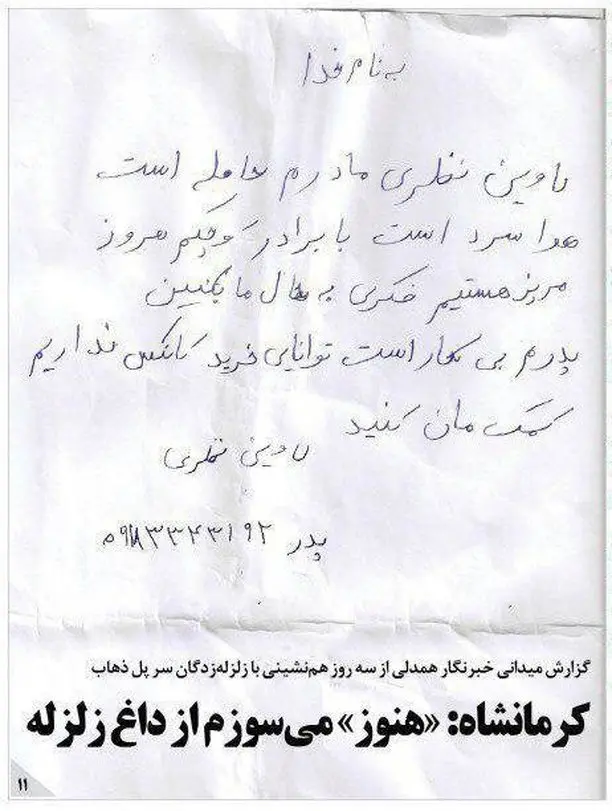 به نام خدا
مادرم حامله است
هوا سرد است با برادر کوچکم هروز
مریز هستیم فکری به حال ما بکنین
پدرم بی کار است توانایی خرید کانکس نداریم
کمک مان کنید
پدر
گزارش میدانی خبرنگار همدلی از سه روز هم‌نشینی با زلزله‌زدگان سر پل ذهاب
کرمانشاه: «هنوز» می‌سوزم از داغ زلزله
۱۱